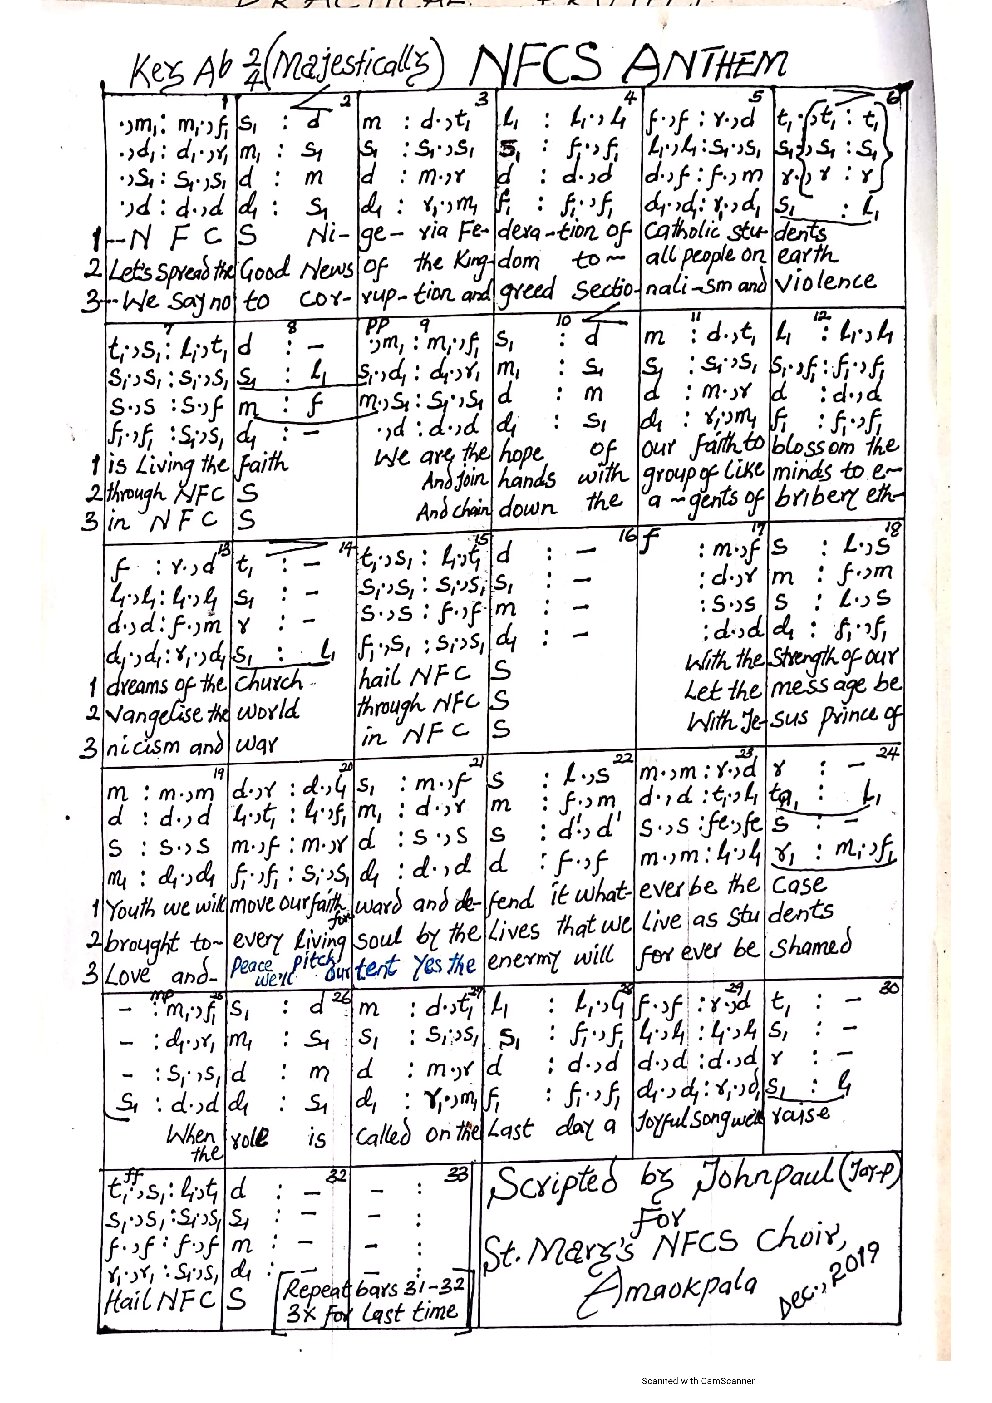 Key Ab 2/4 (Majestically) NFCS ANTHEM
1 2 3 4 5 6
.,m₁: m₁.,f₁ | s₁ : d | m : d.,t₁ | l₁ : l₁.,l₁ | f.,f : r.,d | t₁.,t₁ : t₁
.,d₁: d₁.,r₁ | m₁ : s₁ | s₁ : s₁.,s₁ | s₁ : f₁.,f₁ | l₁.,l₁:s₁.,s₁ | s₁.,s₁ :s₁
.,s₁: s₁.,s₁ | d : m | d : m.,r | d : d.,d | d.,f : f.,m | r.,r : r
.,d : d.,d | d₁ : s₁ | d₁ : r₁.,m₁ | f₁ : f₁.,f₁ | d₁.,d₁: r₁.,d₁ | s₁ : l₁
1 --N F C S Ni- ge- ria Fe- dera-tion of Catholic stu- dents
2 Let's spread the Good News of the King- dom to ~ all people on earth
3 -- We say no to cor- rup-tion and greed sectio- nali-sm and violence
7 8 pp 9 10 11 12
t₁.,s₁: l₁.,t₁ | d : - | .,m₁ : m₁.,f₁ | s₁ : d | m : d.,t₁ | l₁ : l₁.,l₁
s₁.,s₁ :s₁.,s₁ | s₁ : l₁ | s₁.,d₁ : d₁.,r₁ | m₁ : s₁ | s₁ : s₁.,s₁ | s₁.,f₁:f₁.,f₁
s.,s :s.,f | m : f | m.,s₁ : s₁.,s₁ | d : m | d : m.,r | d : d.,d
f₁.,f₁ :s₁.,s₁ | d₁ : - | .,d : d.,d | d₁ : s₁ | d₁ : r₁.,m₁ | f₁ : f₁.,f₁
1 is Living the faith We are the hope of our faith to blossom the
2 through NFC S And join hands with group of like minds to e-
3 in NFC S And chain down the a ~gents of bribery eth-
13 14 15 16 17 18
f : r.,d | t₁ : - | t₁.,s₁ : l₁.,t₁ | d : - | f : m.,f | s : l.,s
l₁.,l₁: l₁.,l₁ | s₁ : - | s₁.,s₁ : s₁.,s₁ | s₁ : - | : d.,r | m : f.,m
d.,d: f.,m | r : - | s.,s : f.,f | m : - | : s.,s | s : l.,s
d₁.,d₁: r₁.,d₁ | s₁ : l₁ | f₁.,s₁ : s₁.,s₁ | d₁ : - | : d.,d | d₁ : f₁.,f₁
1 dreams of the Church hail NFC S With the Strength of our
2 vangelise the world through NFC S Let the message be
3 nicism and war in NFC S With Je- sus prince of
19 20 21 22 23 24
m : m.,m | d.,r : d.,l₁ | s₁ : m.,f | s : l.,s | m.,m : r.,d | r : -
d : d.,d | l₁.,t₁ : l₁.,f₁ | m₁ : d.,r | m : f.,m | d.,d : t₁.,l₁ | ta₁ : l₁
s : s.,s | m.,f : m.,r | d : s.,s | s : d'.,d' | s.,s :fe.,fe | s : -
m₁ : d₁.,d₁ | f₁.,f₁ : s₁.,s₁ | d₁ : d.,d | d : f.,f | m.,m : l₁.,l₁ | r₁ : m₁.,f₁
1 Youth we will move our faith for ward and de- fend it what- ever be the case
2 brought to- every living soul by the Lives that we Live as Stu dents
3 Love and- Peace we'll pitch our tent Yes the enermy will for ever be shamed
mp 25 26 27 28 29 30
- : m₁.,f₁ | s₁ : d | m : d.,t₁ | l₁ : l₁.,l₁ | f.,f : r.,d | t₁ : -
- : d₁.,r₁ | m₁ : s₁ | s₁ : s₁.,s₁ | s₁ : f₁.,f₁ | l₁.,l₁ : l₁.,l₁ | s₁ : -
- : s₁.,s₁ | d : m | d : m.,r | d : d.,d | d.,d : d.,d | r : -
s₁ : d.,d | d₁ : s₁ | d₁ : r₁.,m₁ | f₁ : f₁.,f₁ | d₁.,d₁ : r₁.,d₁ | s₁ : l₁
When the role is Called on the Last day a Joyful song we'll raise
ff 32 33
t₁.,s₁: l₁.,t₁ | d : - | - :
s₁.,s₁ :s₁.,s₁ | s₁ : - | - :
f.,f : f.,f | m : - | - :
r₁.,r₁ : s₁.,s₁ | d₁ : - | - :
Hail NFC S [Repeat bars 31-32
3x for last time]
Scripted by Johnpaul (Jay-P)
For
St. Mary's NFCS Choir,
Amaokpala
Dec., 2019
Scanned with CamScanner